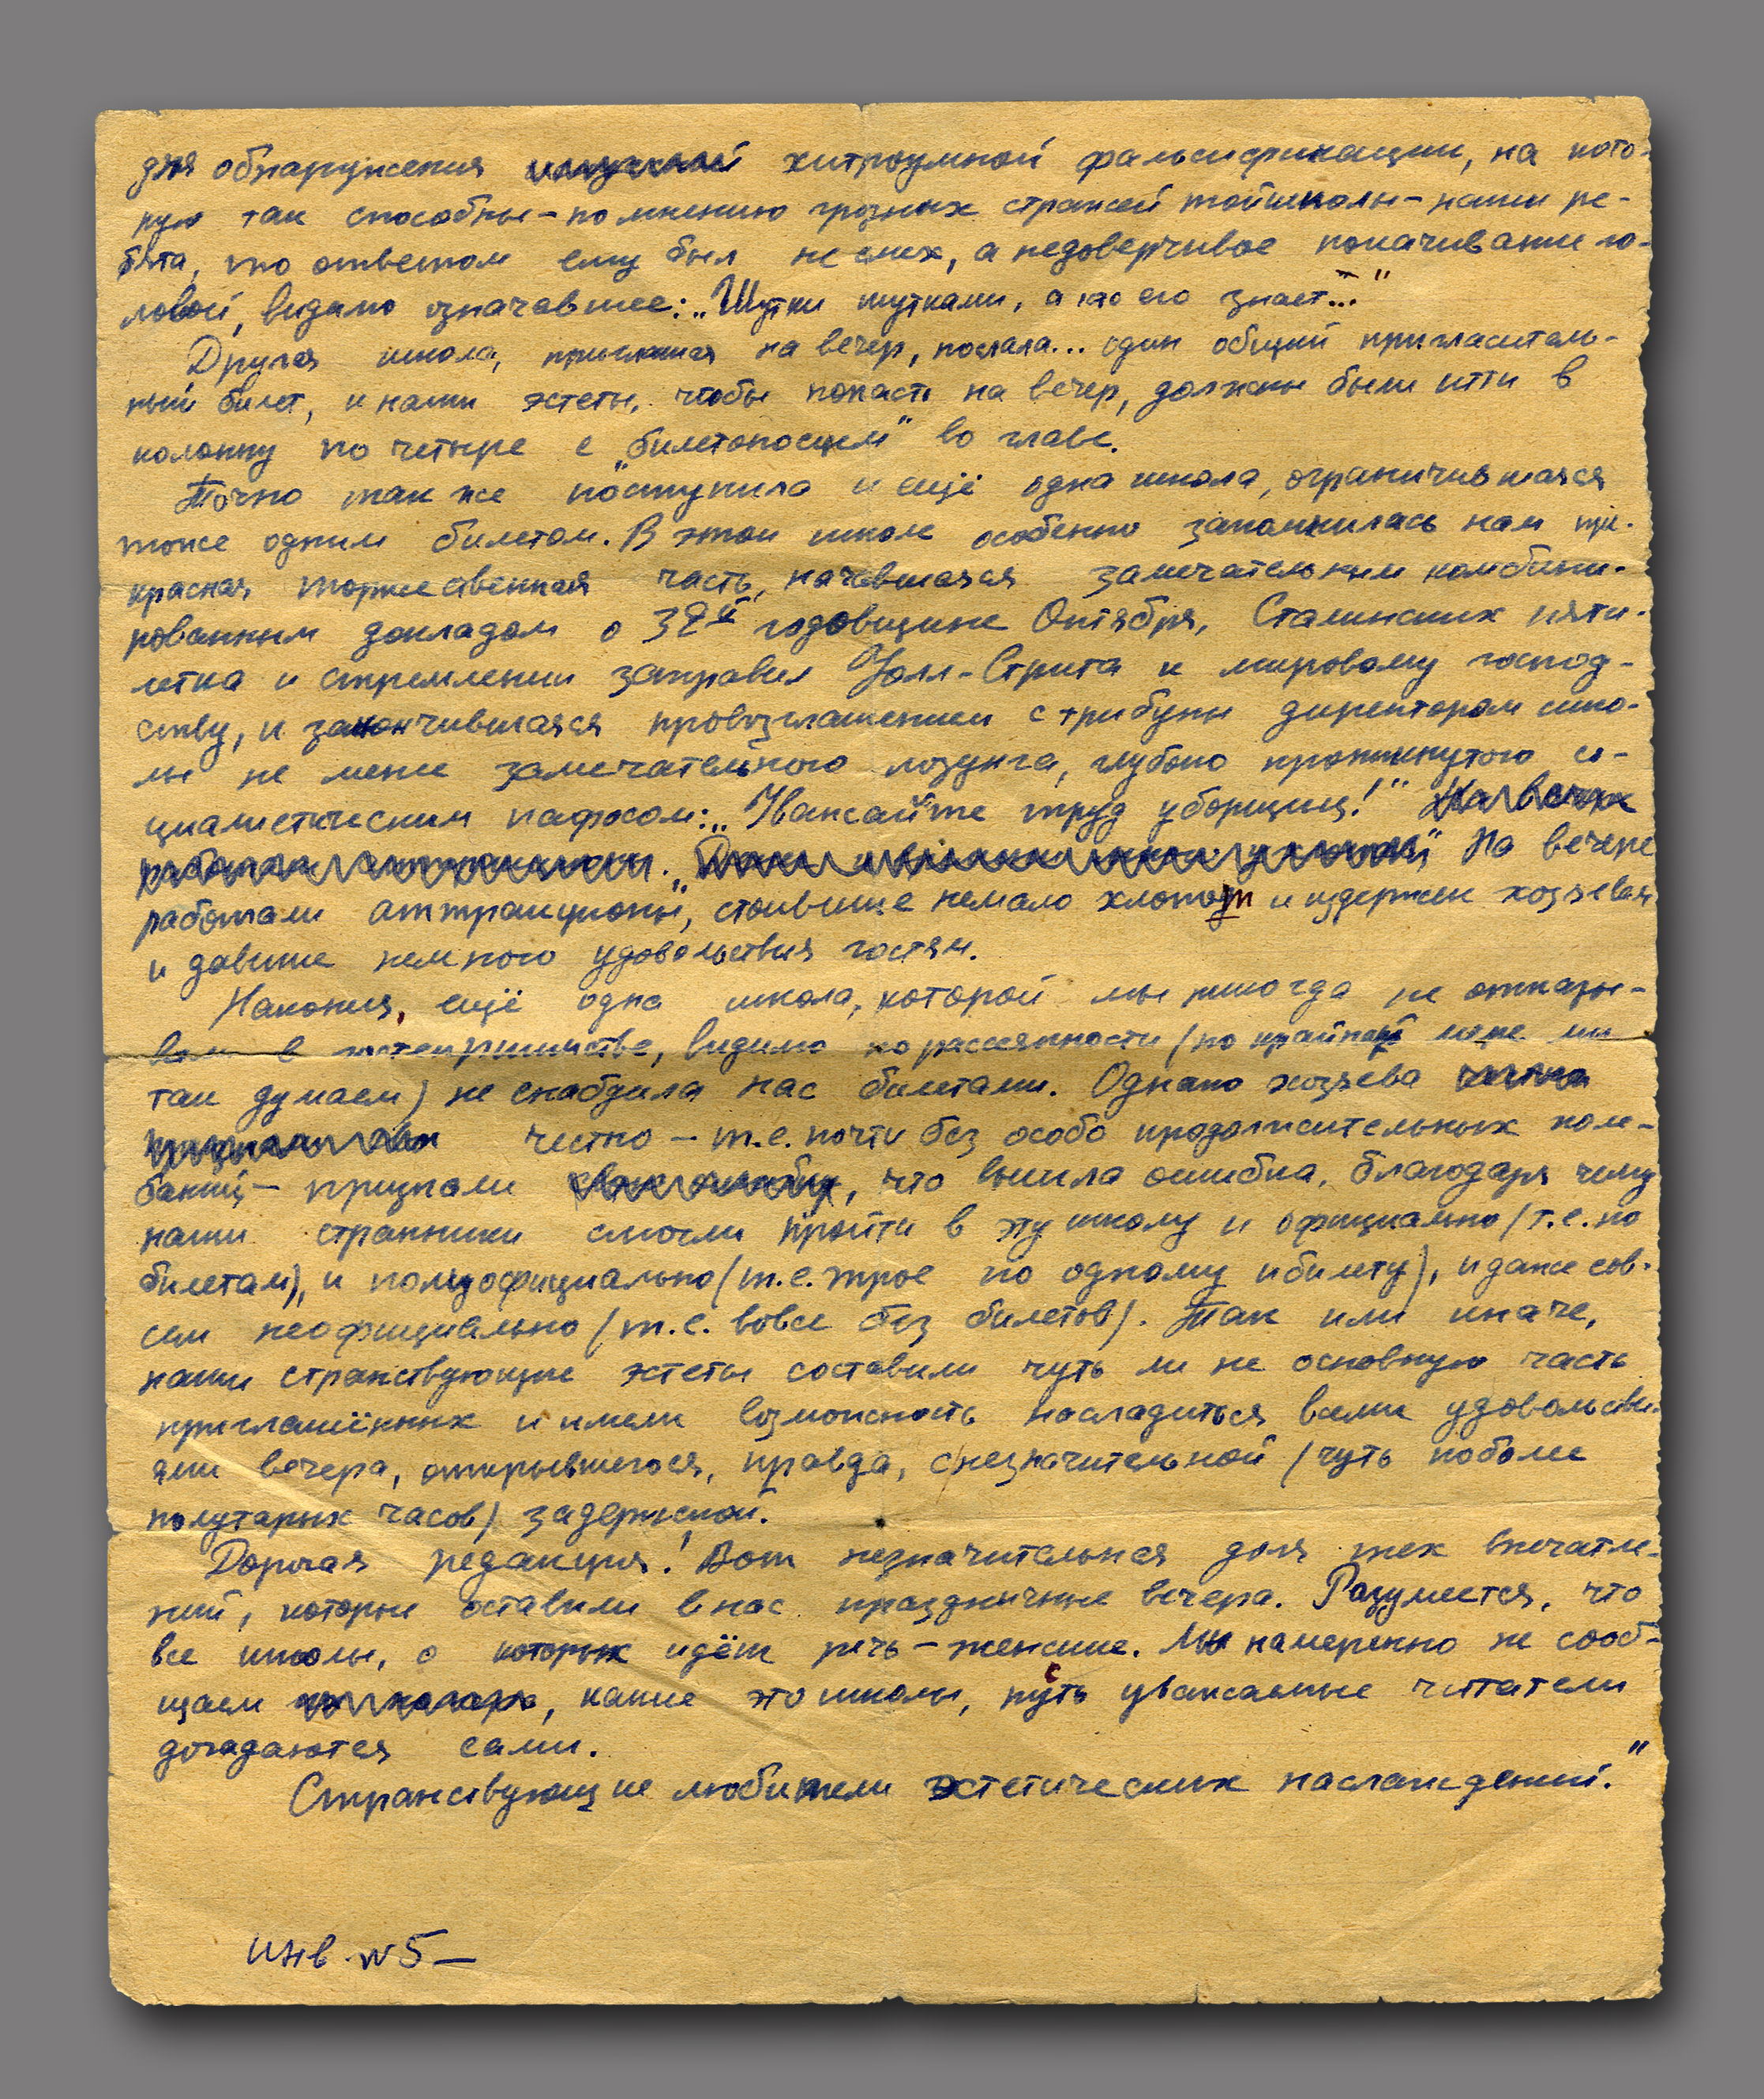 для обнаружения хитроумной фальсификации, на кото-
рую так способны - по мнению грозных стражей той школы - наши ре-
бята, то ответом ему был не смех, а недоверчивое покачивание го-
ловой, видимо означавшее: „Шутки шутками, а кто его знает..."
Другая школа, приглашая на вечер, послала... один общий пригласитель-
ный билет, и наши эстеты, чтобы попасть на вечер, должны были итти в
колонну по четыре с „билетоносцем" во главе.
Точно так же поступила и ещё одна школа, ограничившаяся
тоже одним билетом. В этой школе особенно запомнилась нам пре-
красная торжественная часть, начавшаяся замечательным комбини-
рованным докладом о 32й годовщине Октября, Сталинских пяти-
летках и стремлении заправил Уолл-Стрита к мировому господ-
ству, и закончившаяся провозглашением с трибуны директором шко-
лы не менее замечательного лозунга, глубоко проникнутого со-
циалистическим пафосом: „Уважайте труд уборщиц!" На вечере
работали аттракционы. На вечере
работали „аттракционы", стоившие немало хлопот и издержек хозяевам
и давшие немного удовольствия гостям.
Наконец, ещё одна школа, которой мы никогда не отказы-
вали в гостеприимстве, видимо по рассеянности (по крайней мере мы
так думаем) не снабдила нас билетами. Однако хозяева честно
признали честно - т.е. почти без особо продолжительных коле-
баний - признали свою ошибку, что вышла ошибка, благодаря чему
наши странники смогли пройти в эту школу и официально (т.е. по
билетам), и полуофициально (т.е. трое по одному билету), и даже сов-
сем неофициально (т.е. вовсе без билетов). Так или иначе,
наши странствующие эстеты составили чуть ли не основную часть
приглашённых и имели возможность насладиться всеми удовольстви-
ями вечера, открывшегося, правда, с незначительной (чуть поболе
полутарых часов) задержкой.
Дорогая редакция! Вот незначительная доля тех впечатле-
ний, которые оставили в нас праздничные вечера. Разумеется, что
все школы, о которых идёт речь - женские. Мы намеренно не сооб-
щаем, какие это школы, пусть уважаемые читатели
догадаются сами.
Странствующие любители эстетических наслаждений."
Инв. N 5 -